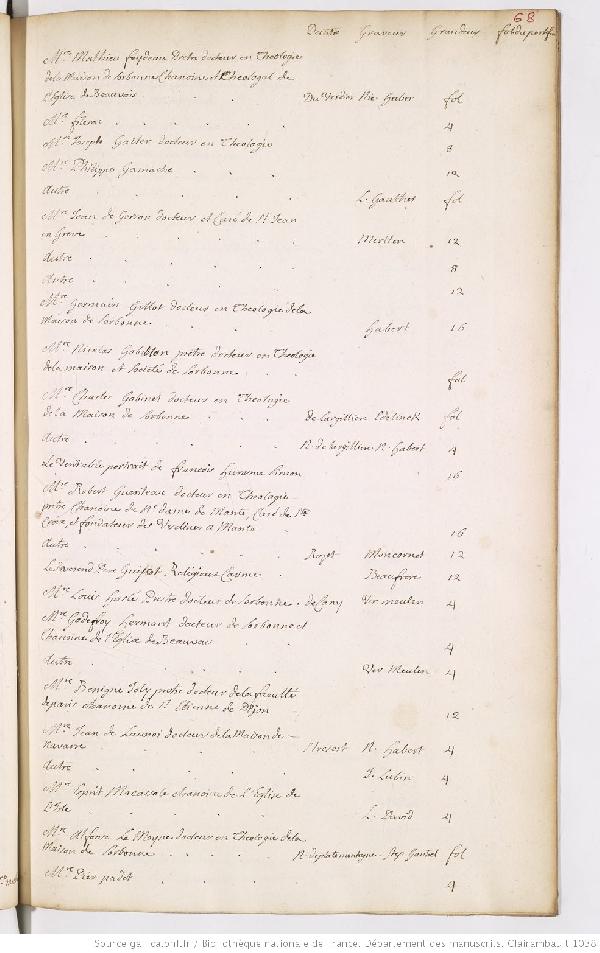 68
Peintre Graveur Grandeur fol du portef.
Mre Mathieu feydeau Pretre docteur en Theologie
de la Maison de Sorbonne Chanoine et Theologal de
l'Eglise de Beauvais . . Du Verdier Nic. Habert fol
Mre . . . . 4
Mre Joseph Galler docteur en Theologie 8
Mre Philippe Gamache . . . 12
Autre . . . L. Gaultier fol
Mre Jean de Gorron docteur et Curé de St Jean
en Greve . . . Merlen . 12
Autre . . . 8
Autre . . . 12
Mre Germain Gillot docteur en Theologie de la
Maison de Sorbonne . . Habert 16
Mre Nicolas Gobillon pretre docteur en Theologie
de la maison et Societé de Sorbonne . fol
Mre Charles Gobinet docteur en Theologie
de la Maison de Sorbonne . . de Largilliere Edelinck fol
Autre . . . N. de Largilliere N. Habert 4
Le Veritable portrait de françois Simon 16
Mre Robert Gueriteau docteur en Theologie
pretre Chanoine de N. dame de Mante, Curé de Ste
Croix, et fondateur des Ursulines a Mante 16
Autre . . . Rojot Moncornet 12
Le Reverend Pere Religieux Carme . Beaufrere 12
Mre Louis Pretre docteur de Sorbonne . de Cany Vermeulen 4
Mre Godefroy Hermant docteur de Sorbonne et
Chanoine de l'Eglise de Beauvais . . 4
Autre . . . Ver Meulen 4
Mre Benigne Joly pretre docteur de la faculté
de paris chanoine de St Etienne de Dijon 12
Mre Jean de Launoi docteur de la Maison de
Navarre . . . Stresor N. Habert 4
Autre . . . J. Lubin 4
Mre Esprit chanoine de L'Eglise de
L'Isle . . . L. David 4
Mre Alfonse Le Moyne docteur en Theologie de la
Maison de Sorbonne . . . N. de plattemontagne Step. Gantrel fol
Mre . . . 4
Source gallica.bnf.fr / Bibliothèque nationale de France. Département des manuscrits. Clairambault 1038